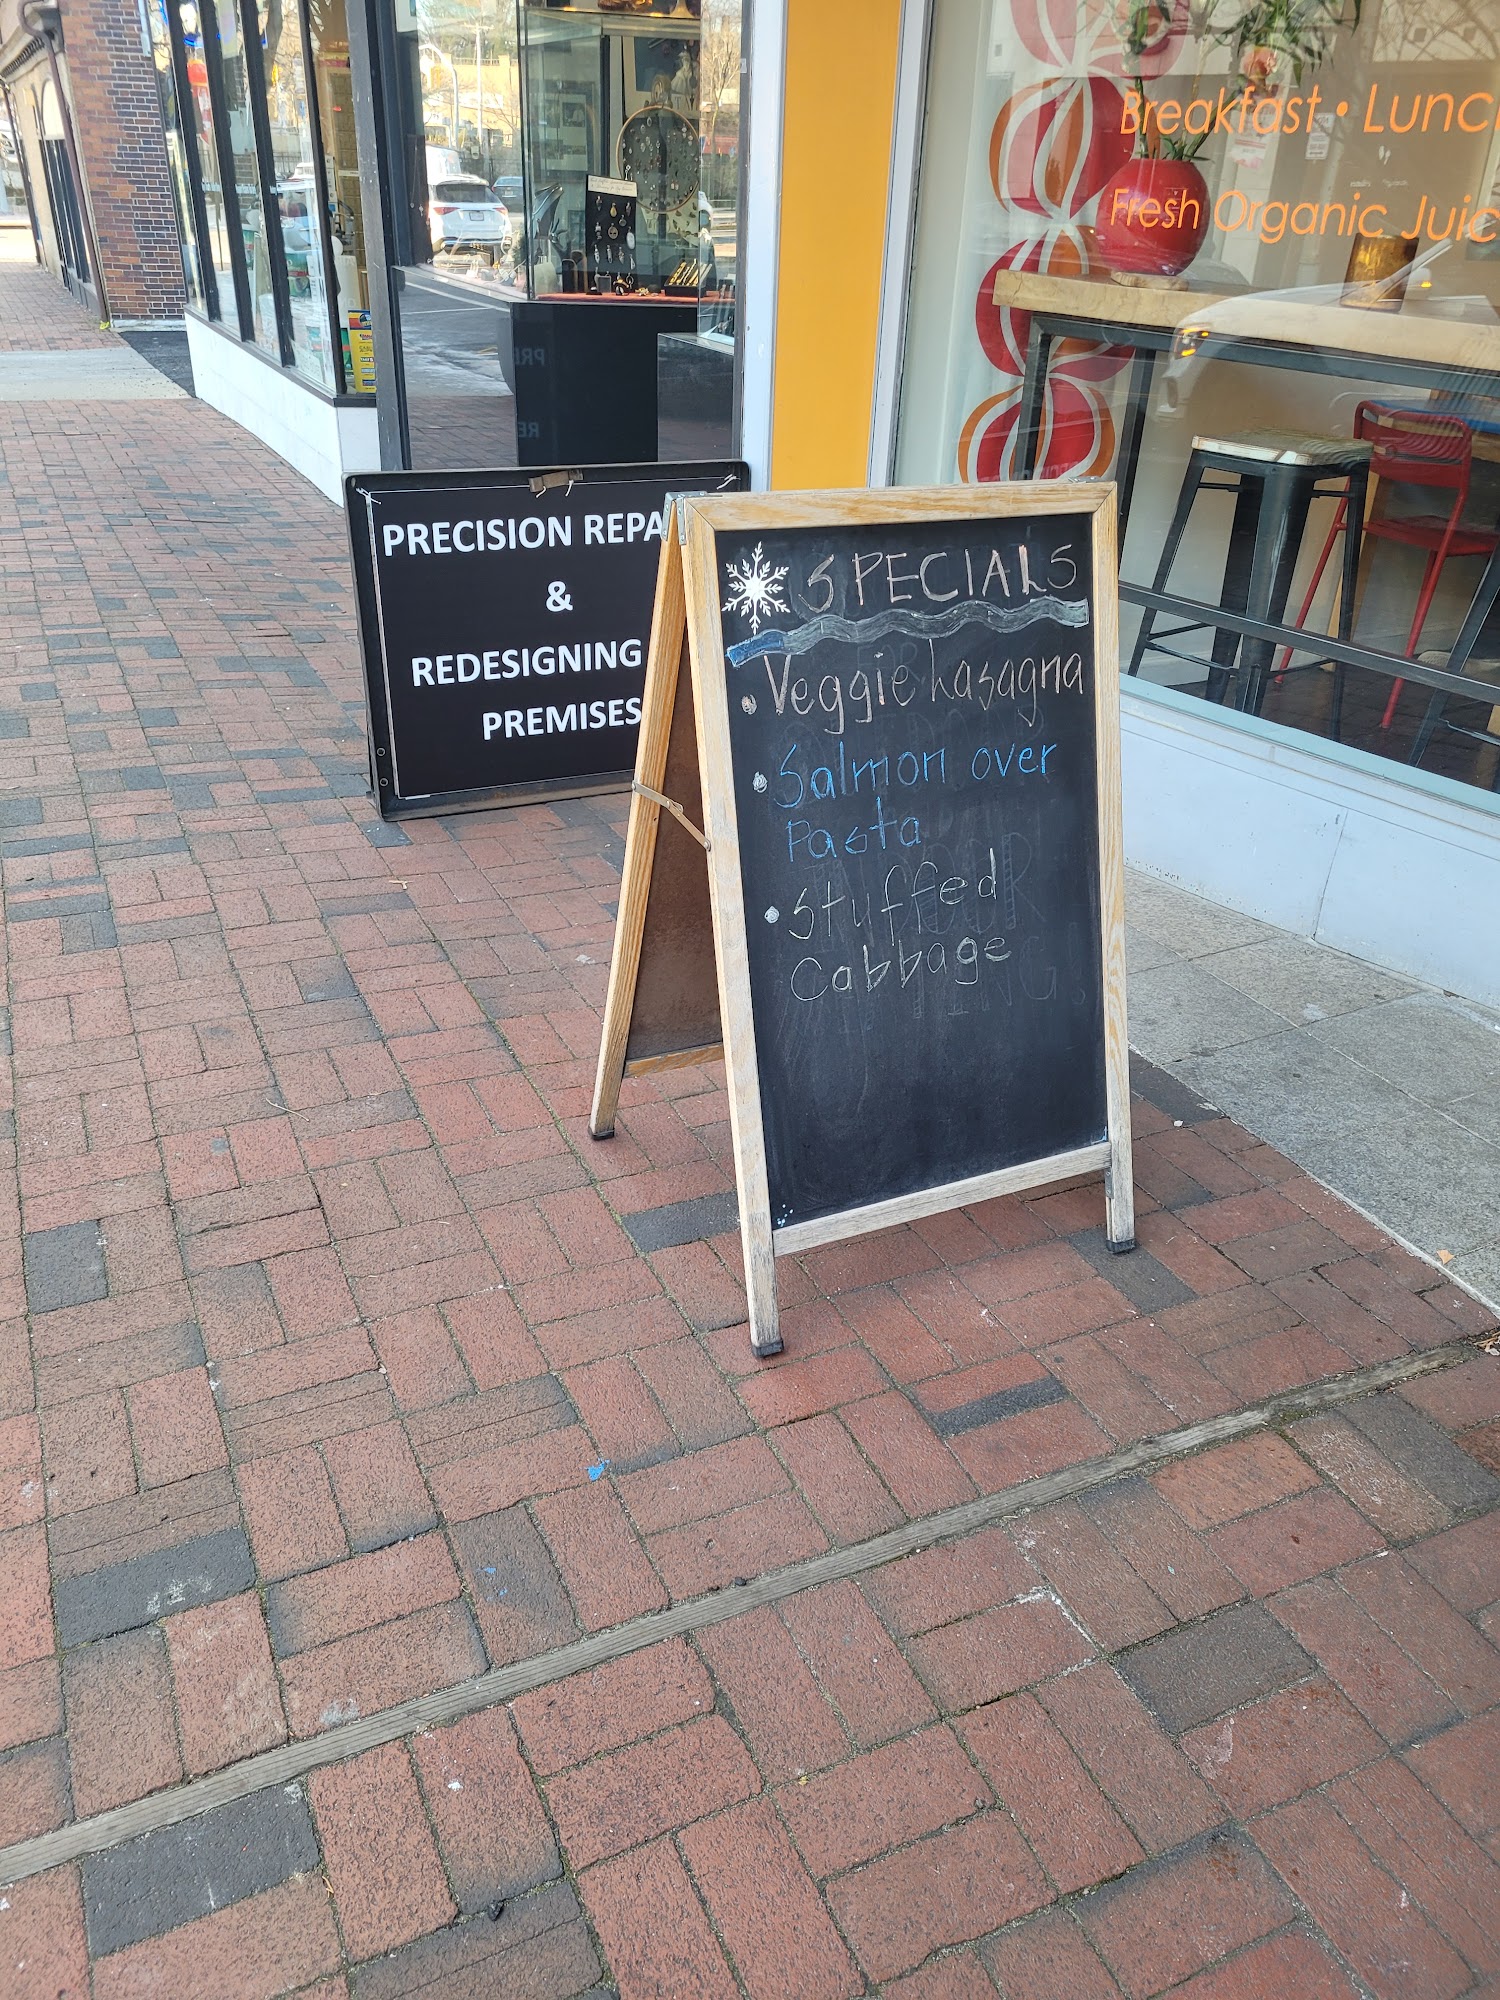 Breakfast • Lunc
Fresh Organic Juic
PRECISION REPA
&
REDESIGNING
PREMISES
SPECIALS
• Veggie Lasagna
• Salmon over
Pasta
• Stuffed
Cabbage